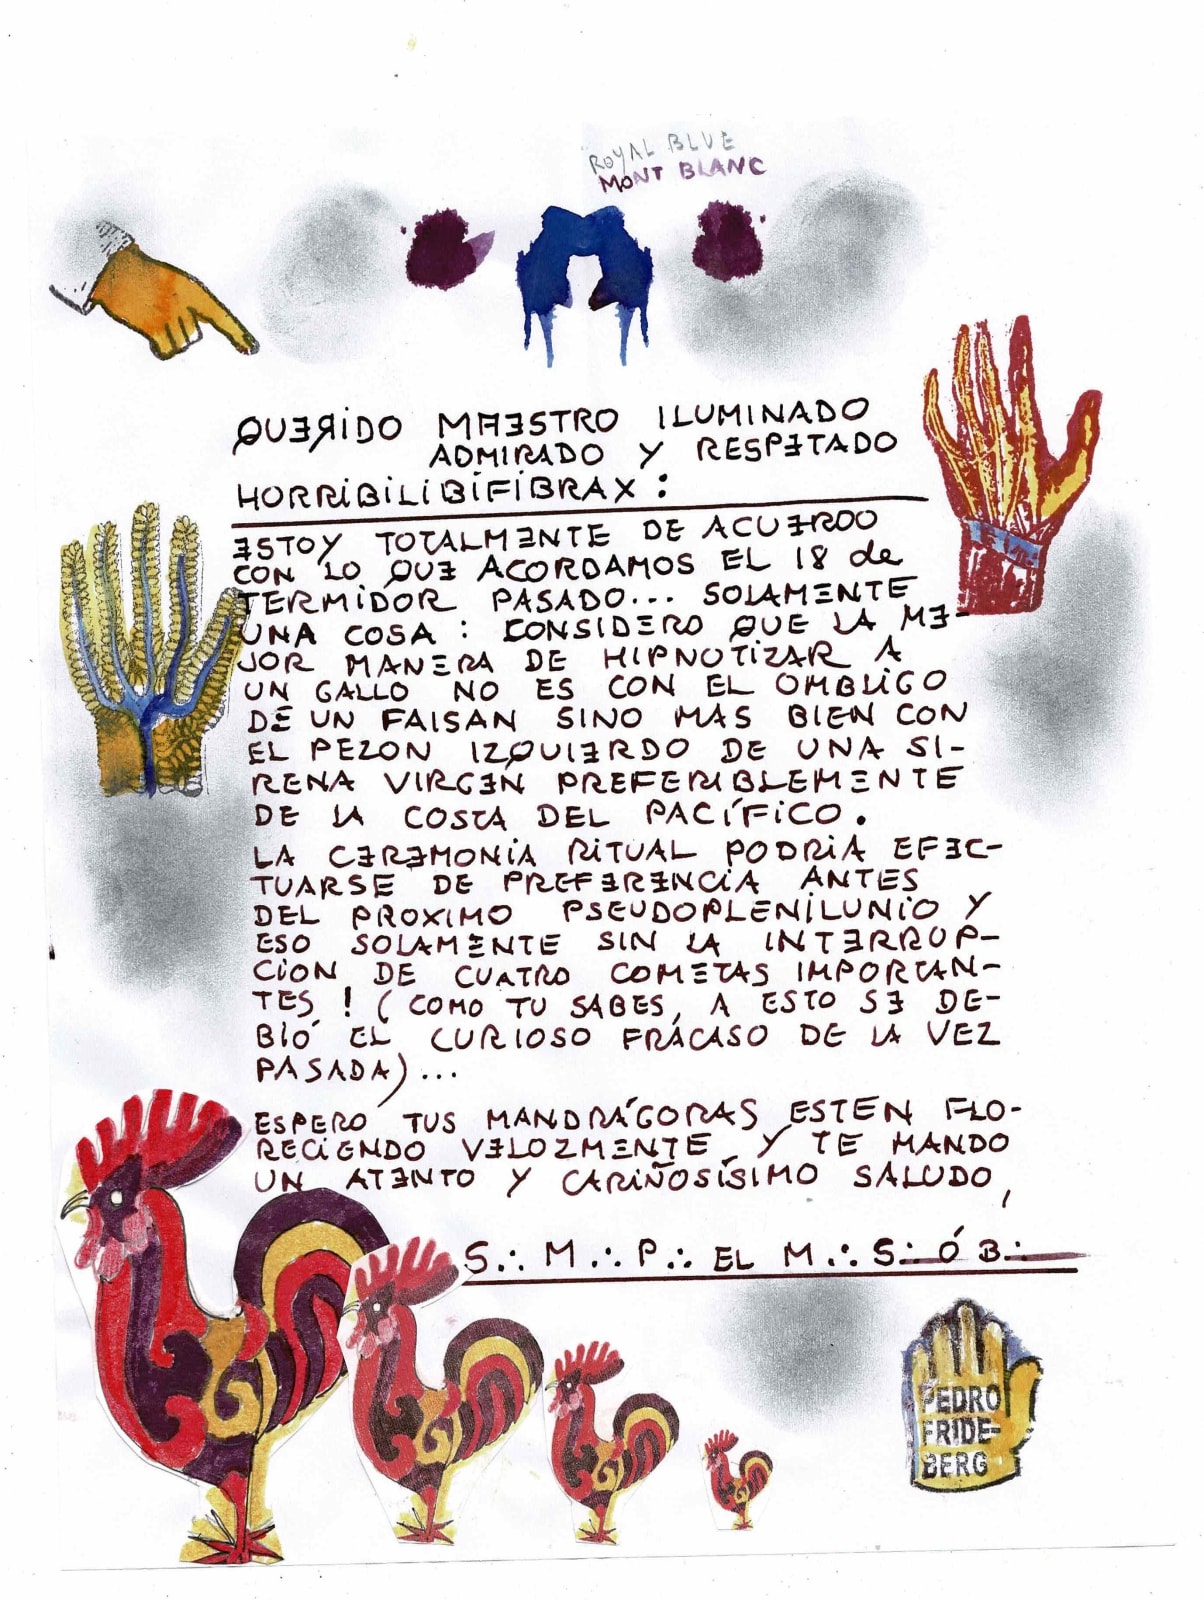 ROYAL BLUE
MONT BLANC
QUERIDO MAESTRO ILUMINADO
ADMIRADO Y RESPETADO
HORRIBILIBIFIBRAX :
ESTOY TOTALMENTE DE ACUERDO
CON LO QUE ACORDAMOS EL 18 de
TERMIDOR PASADO... SOLAMENTE
UNA COSA : CONSIDERO QUE LA ME-
JOR MANERA DE HIPNOTIZAR A
UN GALLO NO ES CON EL OMBLIGO
DE UN FAISAN SINO MAS BIEN CON
EL PEZON IZQUIERDO DE UNA SI-
RENA VIRGEN PREFERIBLEMENTE
DE LA COSTA DEL PACÍFICO.
LA CEREMONIA RITUAL PODRIA EFEC-
TUARSE DE PREFERENCIA ANTES
DEL PROXIMO PSEUDOPLENILUNIO Y
ESO SOLAMENTE SIN LA INTERRUP-
CION DE CUATRO COMETAS IMPORTAN-
TES ! (COMO TU SABES, A ESTO SE DE-
BIÓ EL CURIOSO FRACASO DE LA VEZ
PASADA)...
ESPERO TUS MANDRÁGORAS ESTEN FLO-
RECIENDO VELOZMENTE Y TE MANDO
UN ATENTO Y CARIÑOSÍSIMO SALUDO,
S∴ M∴ P∴ EL M∴ S∴ Ó B∴
PEDRO
FRIDE-
BERG